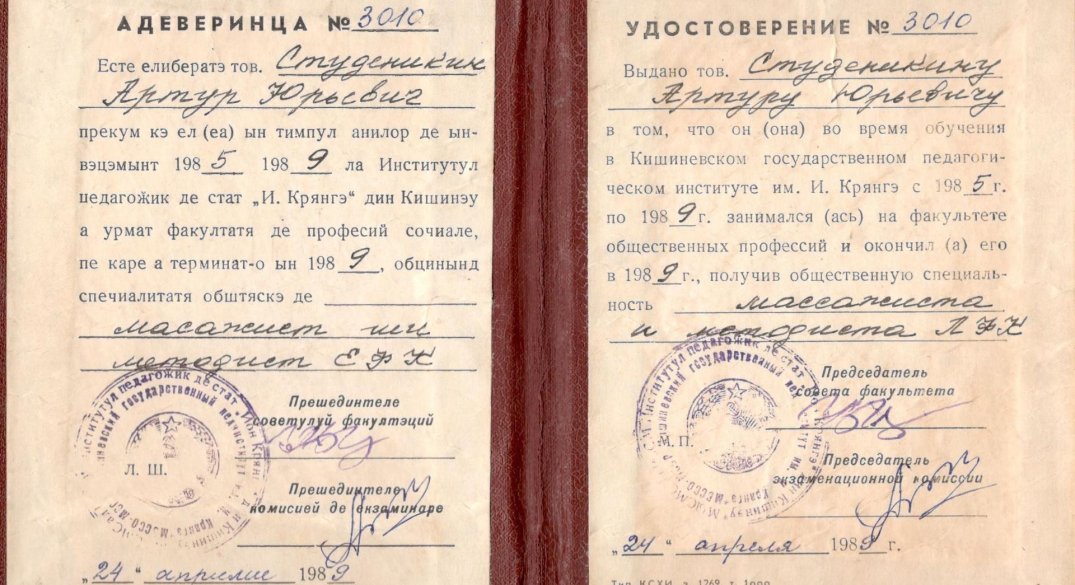 АДЕВЕРИНЦА № 3010
Есте елибератэ тов. Студеникин
Артур Юрьевич
прекум кэ ел (еа) ын тимпул анилор де ын-
вэцэмынт 1985 1989 ла Институтул
педагожик де стат „И. Крянгэ" дин Кишинэу
а урмат факултатя де професий сочиале,
пе каре а терминат-о ын 1989, обцинынд
спечиалитатя обштяскэ де
масажист ши
методист ЕФК
Прешединтеле
советулуй факултэций
Л. Ш.
Прешединтеле
комисией де екзаминаре
„24" априлие 1989
УДОСТОВЕРЕНИЕ № 3010
Выдано тов. Студеникину
Артуру Юрьевичу
в том, что он (она) во время обучения
в Кишиневском государственном педагоги-
ческом институте им. И. Крянгэ с 1985г.
по 1989г. занимался (ась) на факультете
общественных профессий и окончил (а) его
в 1989г., получив общественную специаль-
ность массажиста
и методиста ЛФК
Председатель
совета факультета
М. П.
Председатель
экзаменационной комиссии
„24" апреля 1989 г.